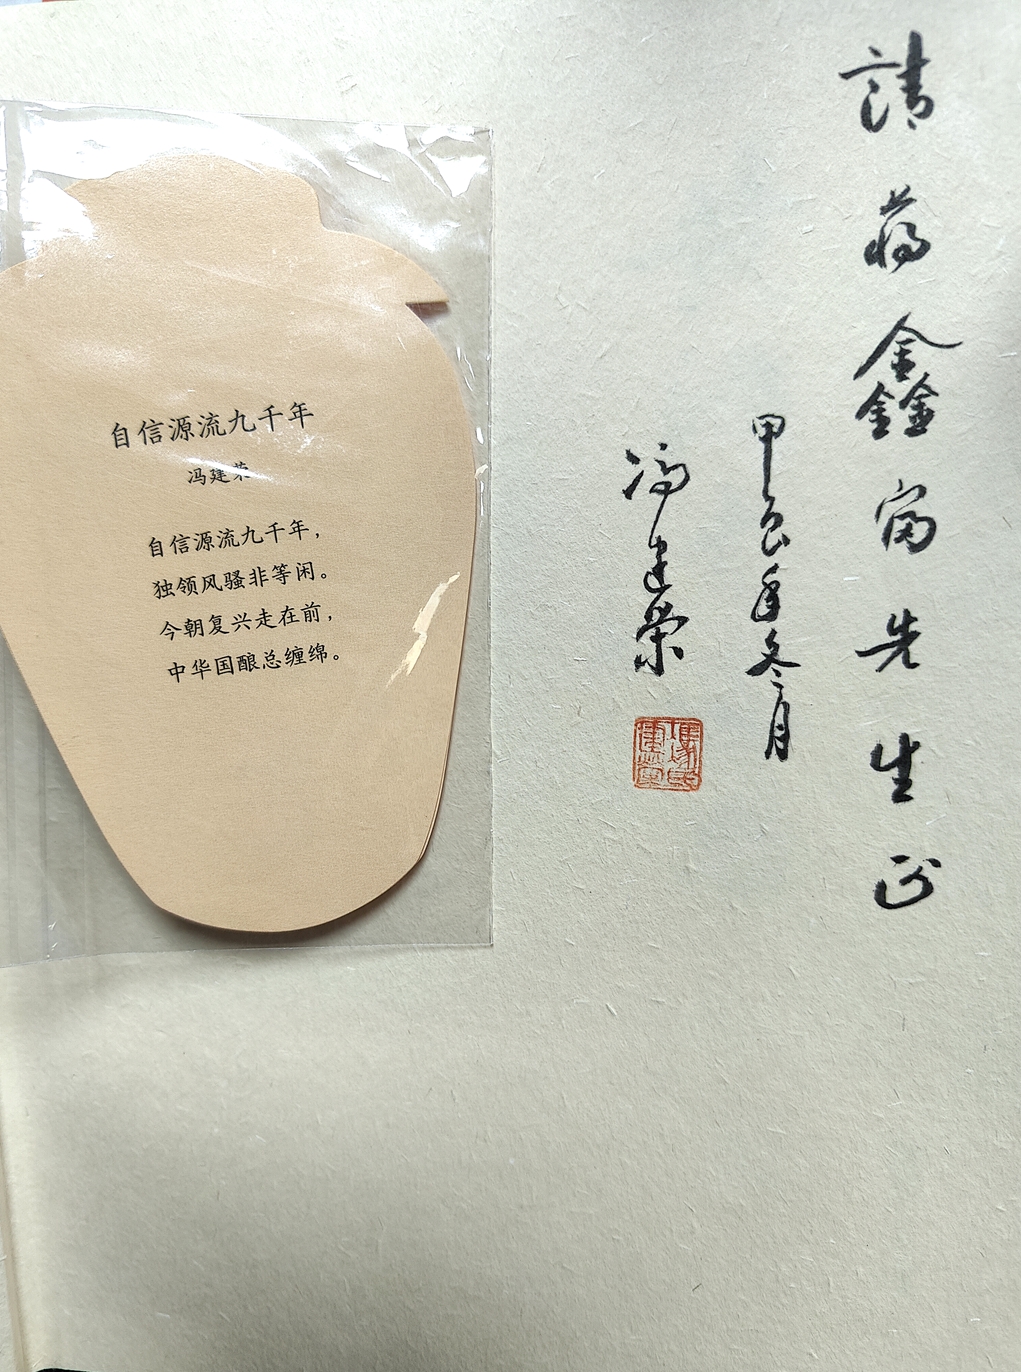 請蒋鑫富先生正
甲辰年冬月
馮建榮
自信源流九千年
冯建荣
自信源流九千年，
独领风骚非等闲。
今朝复兴走在前，
中华国酿总缠绵。